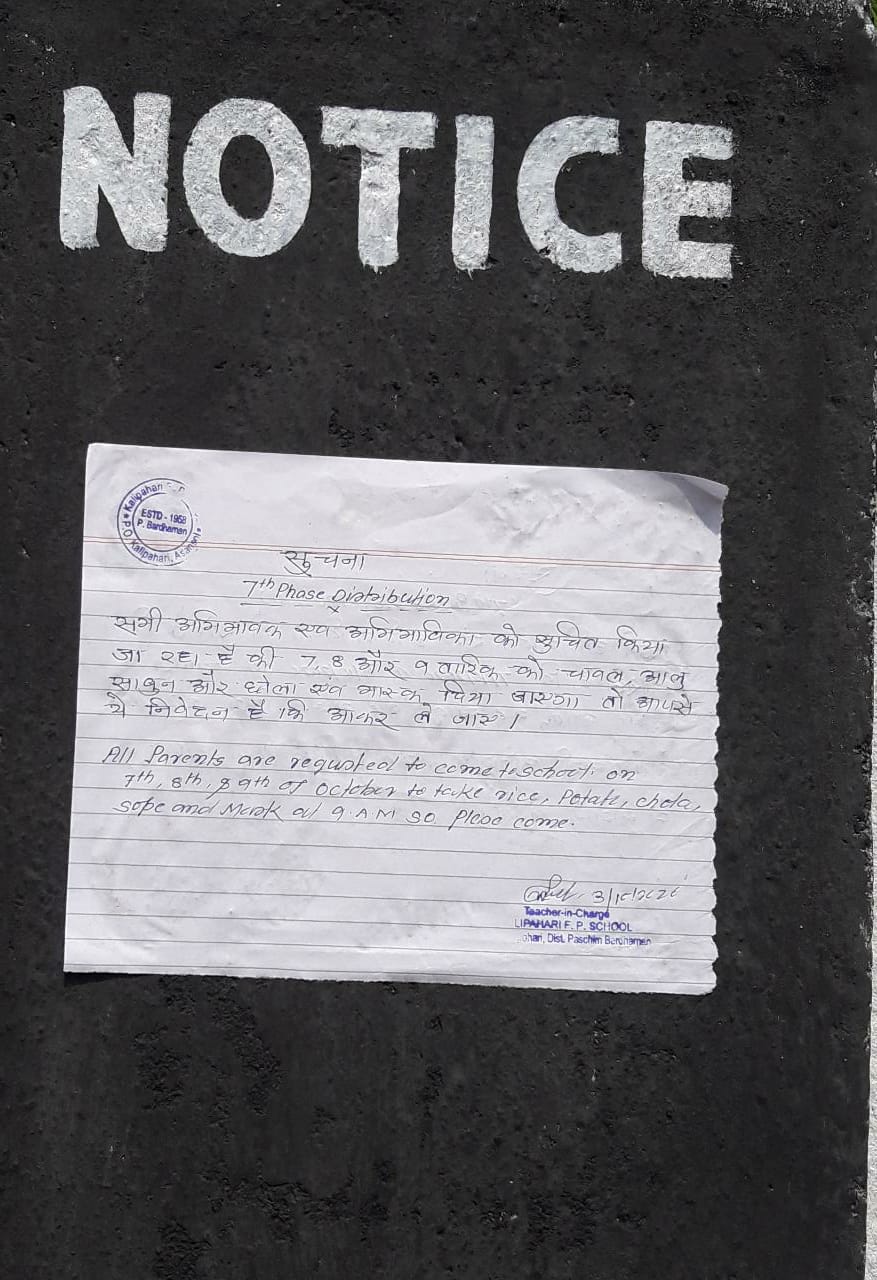 NOTICE
Kalipahari
ESTD - 1968
P. Bardhaman
P.O. Kalipahari, Asansol
सूचना
7th Phase Distribution
सभी अभिभावक एवं अभिभाविका को सुचित किया
जा रहा है की 7, 8 और 9 तारिक को चावल, आलु
साबुन और छोला एवं मास्क दिया जाएगा तो आपसे
ये निवेदन है कि आकर ले जाए।
All Parents are requsted to come to school on
7th, 8th, & 9th of October to take rice, Potato, chola,
sope and Mask at 9 A.M so please come.
3/10/2020
Teacher-in-Charge
LIPAHARI F. P. SCHOOL
Dist. Paschim Bardhaman